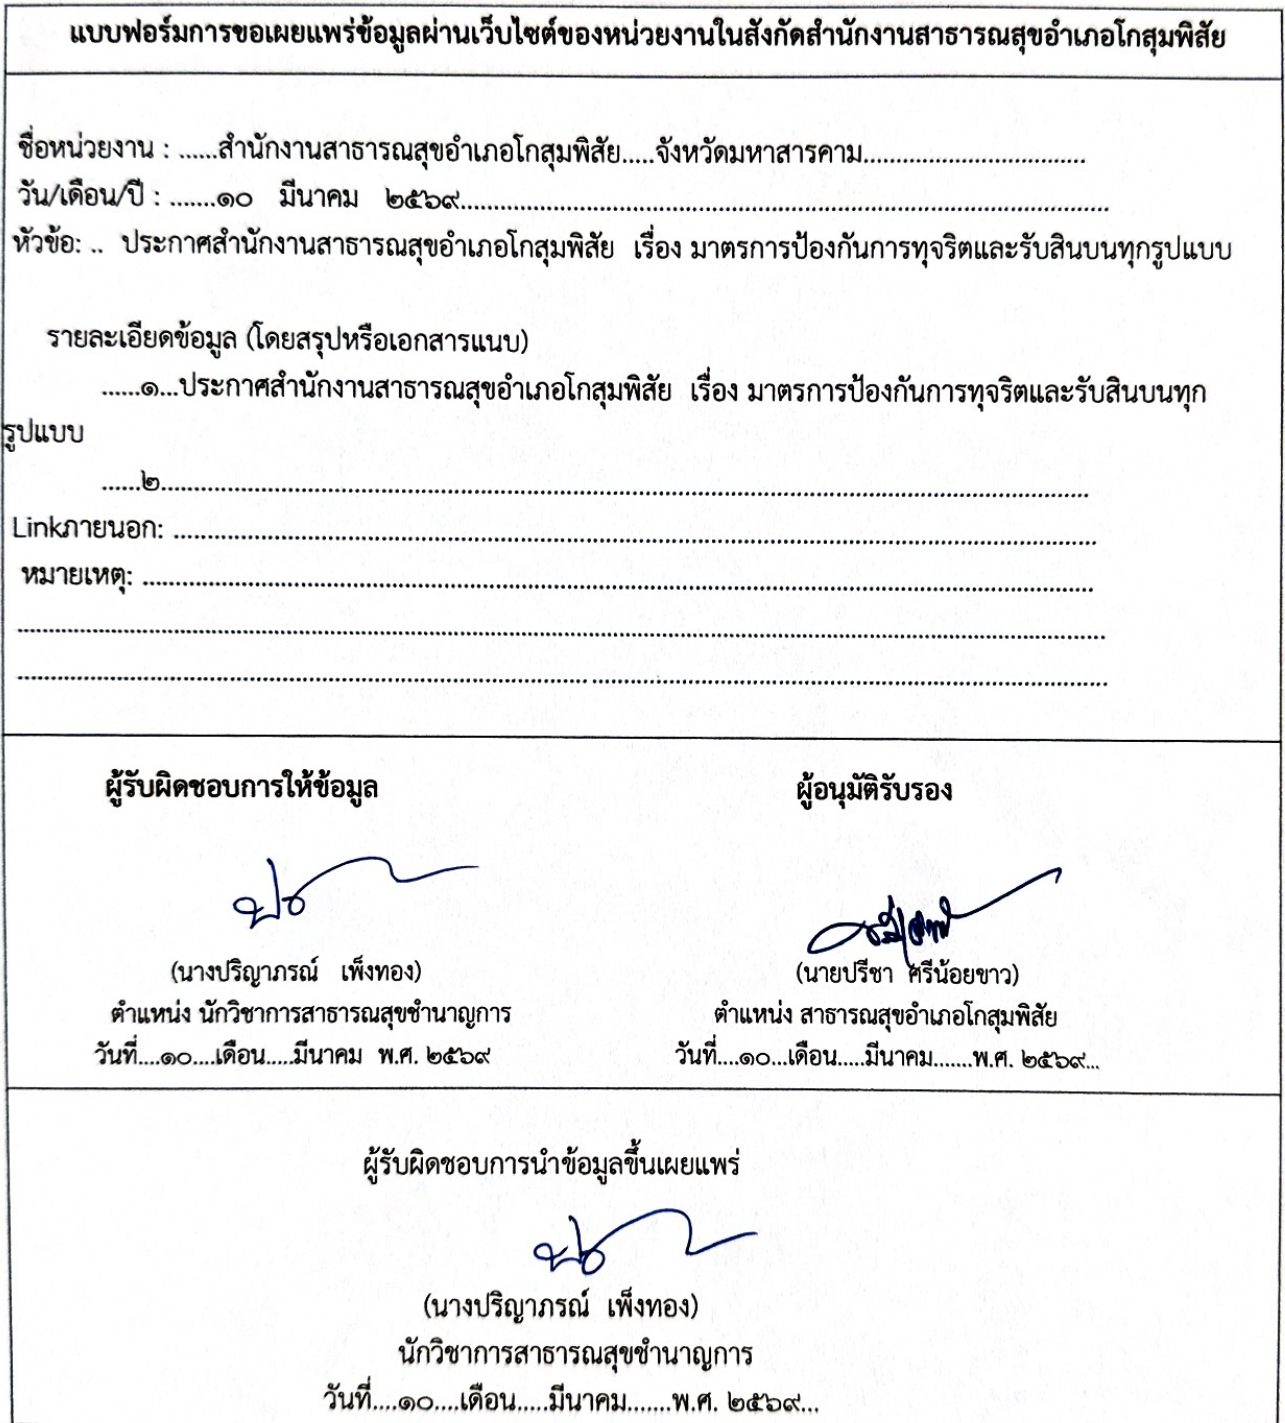 แบบฟอร์มการขอเผยแพร่ข้อมูลผ่านเว็บไซต์ของหน่วยงานในสังกัดสำนักงานสาธารณสุขอำเภอโกสุมพิสัย
ชื่อหน่วยงาน : ......สำนักงานสาธารณสุขอำเภอโกสุมพิสัย.....จังหวัดมหาสารคาม..................................
วัน/เดือน/ปี : .......๑๐ มีนาคม ๒๕๖๙....................................................................................................
หัวข้อ: .. ประกาศสำนักงานสาธารณสุขอำเภอโกสุมพิสัย เรื่อง มาตรการป้องกันการทุจริตและรับสินบนทุกรูปแบบ
รายละเอียดข้อมูล (โดยสรุปหรือเอกสารแนบ)
......๑...ประกาศสำนักงานสาธารณสุขอำเภอโกสุมพิสัย เรื่อง มาตรการป้องกันการทุจริตและรับสินบนทุก
รูปแบบ
......๒..............................................................................................................................
Linkภายนอก: ..............................................................................................................................
หมายเหตุ: ..............................................................................................................................
ผู้รับผิดชอบการให้ข้อมูล ผู้อนุมัติรับรอง
(นางปริญาภรณ์ เพ็งทอง) (นายปรีชา ศรีน้อยขาว)
ตำแหน่ง นักวิชาการสาธารณสุขชำนาญการ ตำแหน่ง สาธารณสุขอำเภอโกสุมพิสัย
วันที่....๑๐....เดือน.....มีนาคม พ.ศ. ๒๕๖๙ วันที่....๑๐...เดือน.....มีนาคม.......พ.ศ. ๒๕๖๙...
ผู้รับผิดชอบการนำข้อมูลขึ้นเผยแพร่
(นางปริญาภรณ์ เพ็งทอง)
นักวิชาการสาธารณสุขชำนาญการ
วันที่....๑๐....เดือน.....มีนาคม.......พ.ศ. ๒๕๖๙...